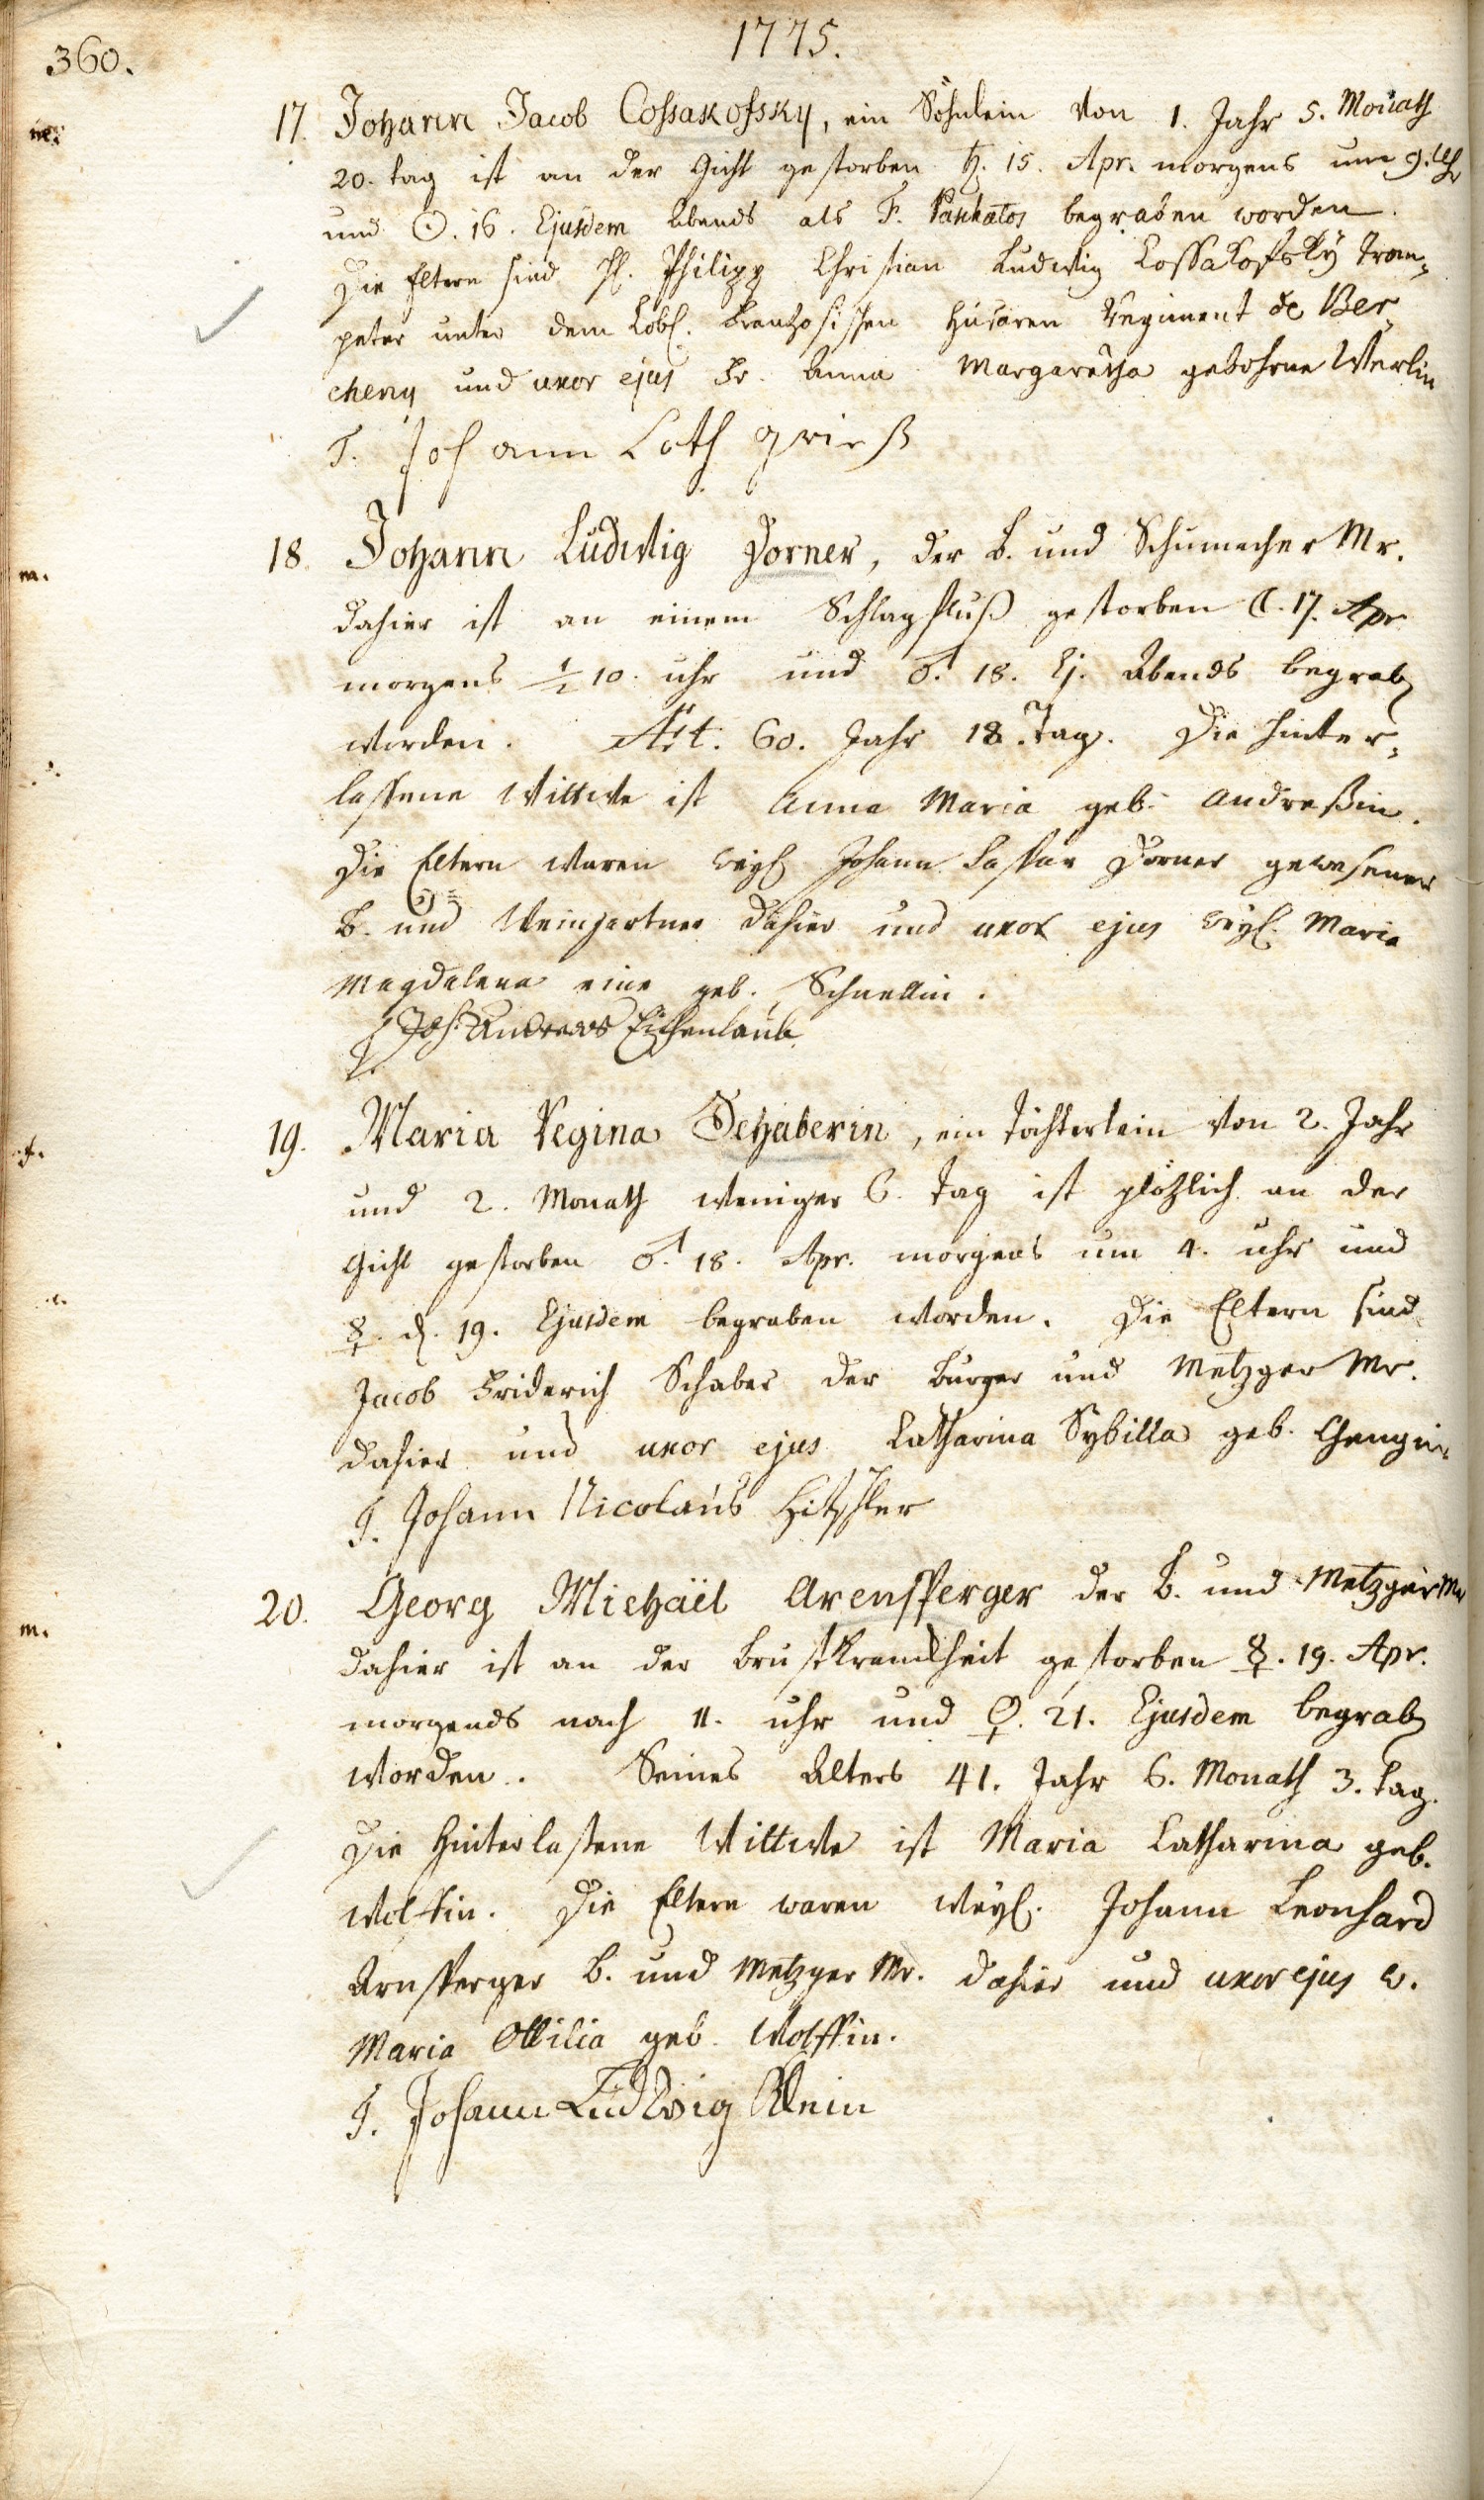 360.
1775.
m.
17. Johann Jacob Cossakofsky, ein Söhnlein von 1. Jahr 5. Monath
20. tag ist an der Gicht gestorben ♄. 15. Apr. morgens um 9. Uhr
und ☉. 16. Ejusdem Abends als F. Paschatos begraben worden.
Die Eltern sind H. Philipp Christian Ludwig Cossakofsky Trom=
peter unter dem Löbl. Französischen Husaren Regiment de Ber=
cheny und uxor ejus Fr. Anna Margaretha gebohrne Werlin
T. Johann Loth Grieß
m.
18. Johann Ludwig Dorner, der B. und Schumacher Mr.
dahier ist an einem Schlagfluß gestorben ☾. 17. Apr
morgens ½ 10. uhr und ♂. 18. Ej. Abends begrab
worden. Æt. 60. Jahr 18. Tag. Die hinter=
lassene Wittwe ist Anna Maria geb. Andreßin.
Die Eltern waren weyl Johann Caspar Dorner gewesener
B. und Weingartner dahier und uxor ejus weyl. Maria
Magdalena eine geb. Schnellin.
T. Joh. Andreas Eichenlaub
f.
19. Maria Regina Schaberin, ein Töchterlein von 2. Jahr
und 2. Monath weniger 6. Tag ist plötzlich an der
Gicht gestorben ♂. 18. Apr. morgens um 4. uhr und
☿. d. 19. Ejusdem begraben worden. Die Eltern sind
Jacob Friderich Schaber der Burger und Metzger Mr.
dahier und uxor ejus Catharina Sybilla geb.
T. Johann Nicolaus Hitschler
m.
20. Georg Michaël Arensperger der B. und Metzger Mr
dahier ist an der Brustkranckheit gestorben ☿. 19. Apr.
morgends nach 11. uhr und ♀. 21. Ejusdem begrab
worden. Seines Alters 41. Jahr 6. Monath 3. tag.
Die Hinterlaßene Wittwe ist Maria Catharina geb.
Wolffin. Die Eltern waren weyl. Johann Leonhard
Arnsperger B. und Metzger Mr. dahier und uxor ejus w.
Maria Ottilia geb. Wolffin.
T. Johann Ludwig Klein